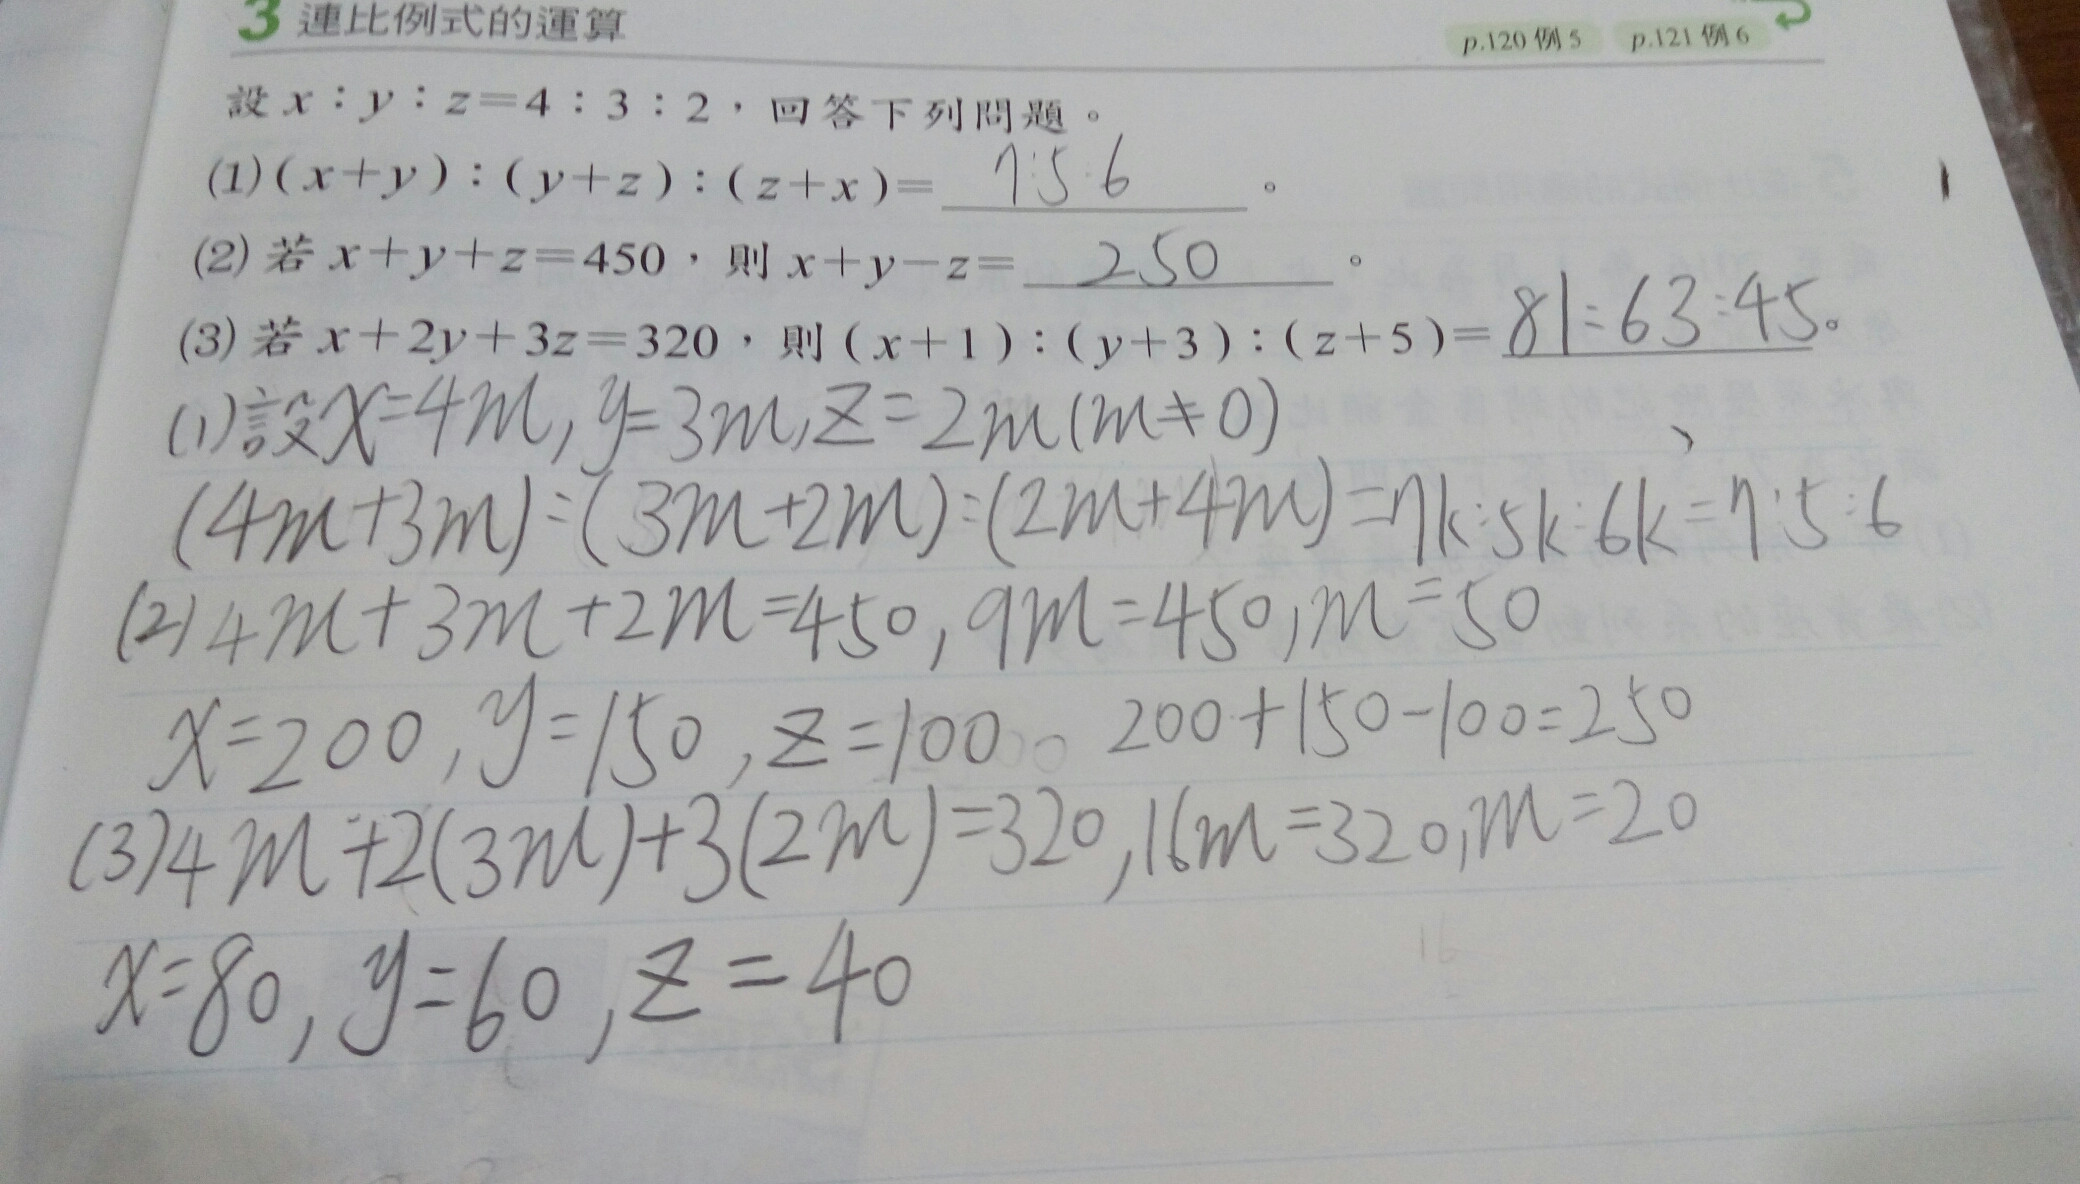 3 連比例式的運算
p.120 例5 p.121 例6
設 x:y:z=4:3:2,回答下列問題。
(1)(x+y):(y+z):(z+x)= 7:5:6 。
(2)若 x+y+z=450,則 x+y-z= 250 。
(3)若 x+2y+3z=320,則(x+1):(y+3):(z+5)= 81:63:45。
(1)設x=4m,y=3m,z=2m(m≠0)
(4m+3m):(3m+2m):(2m+4m)=7k:5k:6k=7:5:6
(2)4m+3m+2m=450,9m=450,m=50
x=200,y=150,z=100 200+150-100=250
(3)4m+2(3m)+3(2m)=320,16m=320,m=20
x=80,y=60,z=40